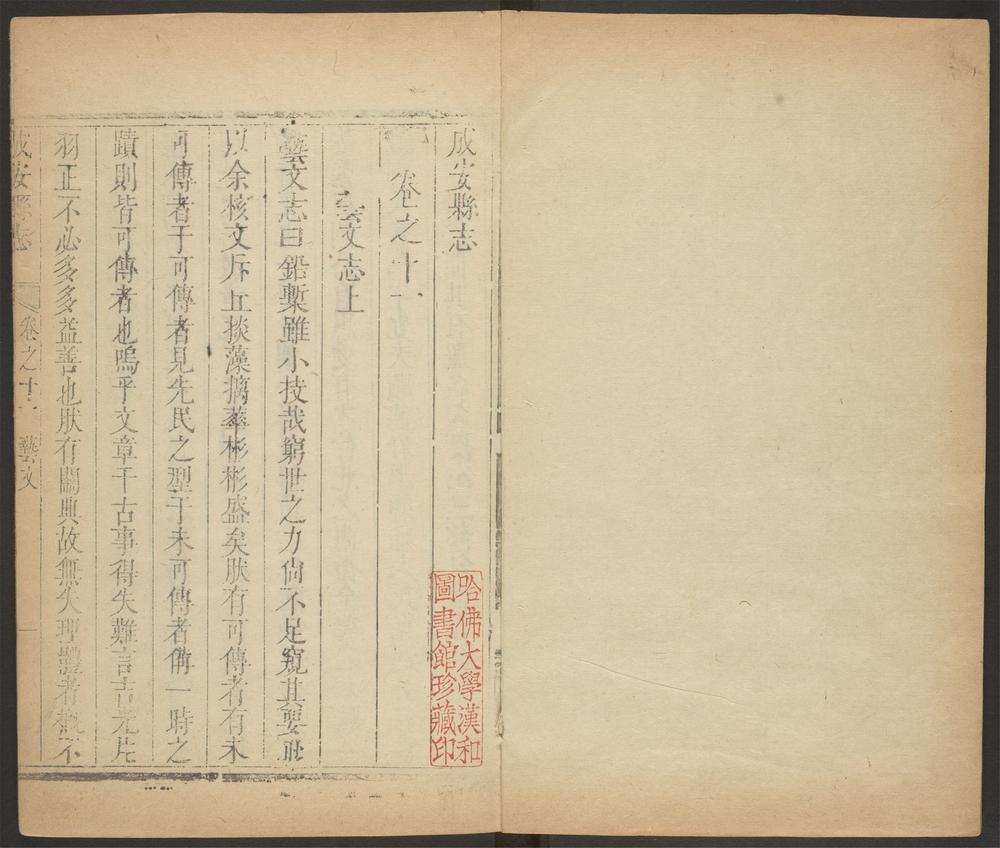 成安縣志
卷之十一
藝文志上
藝文志曰鉛槧雖小技哉窮世之力尚不足窺其要眇
以余核文斥丘掞藻摛華彬彬盛矣肰有可傳者有未
可傳者于可傳者見先民之型于未可傳者備一時之
蹟則皆可傳者也嗚乎文章千古事得失難言吉光片
羽正不必多多益善也肰有關典故無失理體者槩不
成安縣志 卷之十一 藝文 一
哈佛大學漢和
圖書館珍藏印